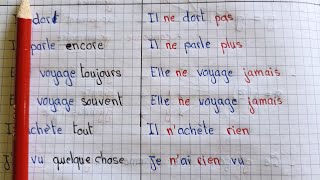 dort Il ne dort pas
parle encore Il ne parle plus
voyage toujours Elle ne voyage jamais
voyage souvent Elle ne voyage jamais
achète tout Il n'achète rien
vu quelque chose Je n'ai rien vu